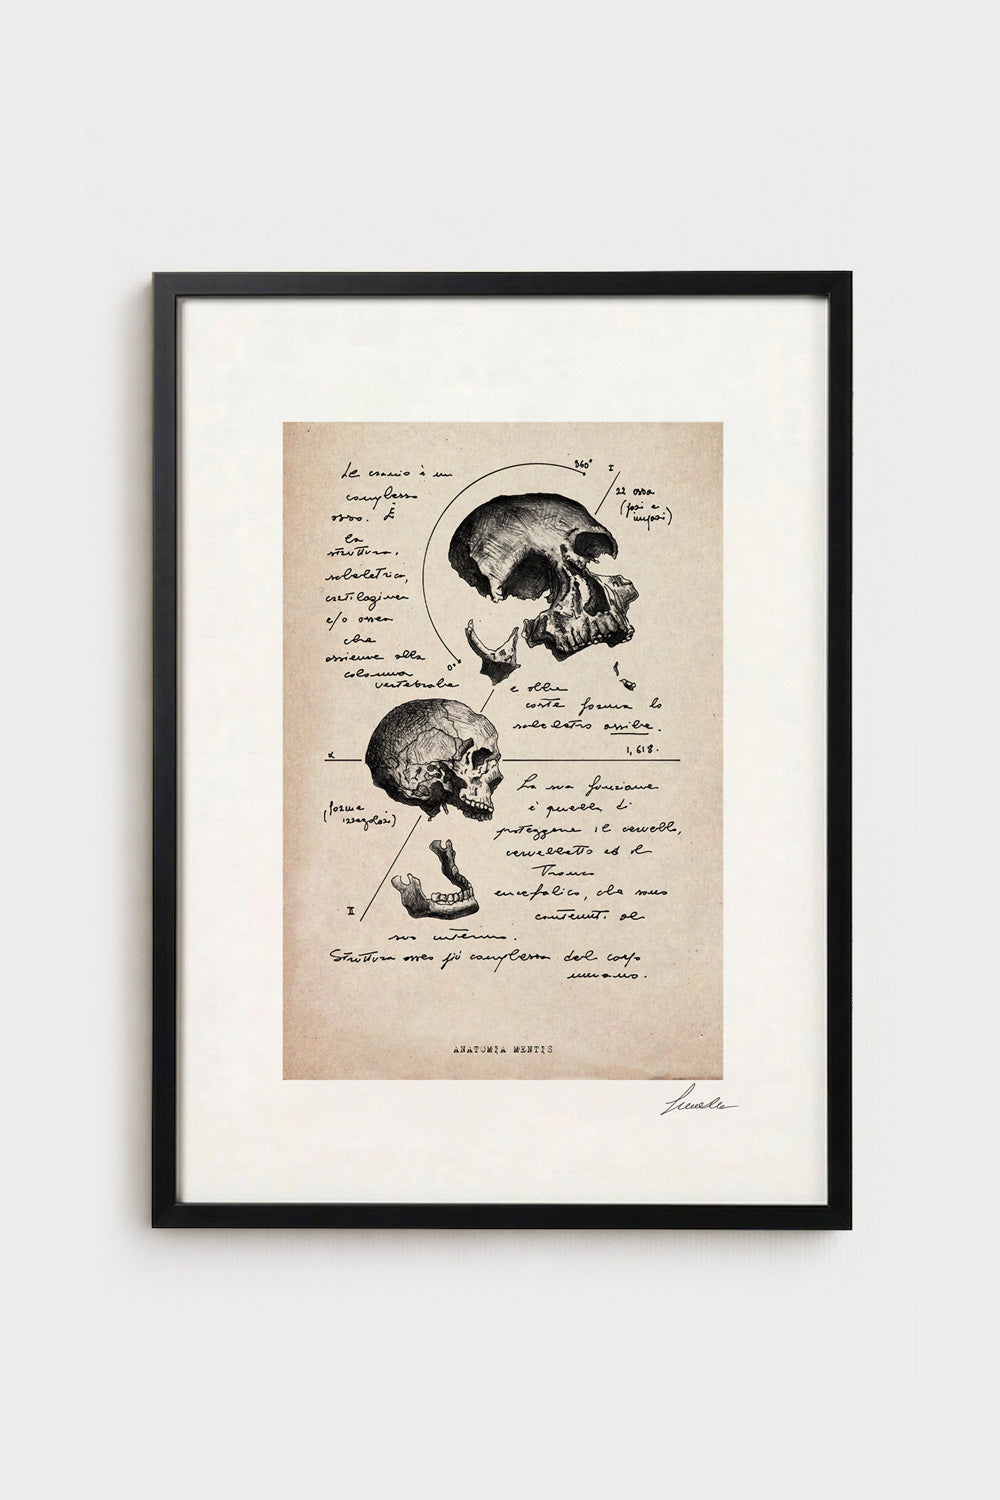 Le cranio è un
complesso
osso. È
la
struttura,
scheletrica,
cartilaginea
e/o ossea
che
assieme alla
colonna
vertebrale
e alle
coste forma lo
scheletro assile.
360°
I
22 ossa
(pari e
impari)
0°
1,618.
x
(forme
irregolari)
II
La sua funzione
è quella di
proteggere il cervello,
cervelletto ed il
Tronco
encefalico, che sono
contenuti al
suo interno.
Struttura ossea più complessa del corpo
umano.
ANATOMIA MENTIS